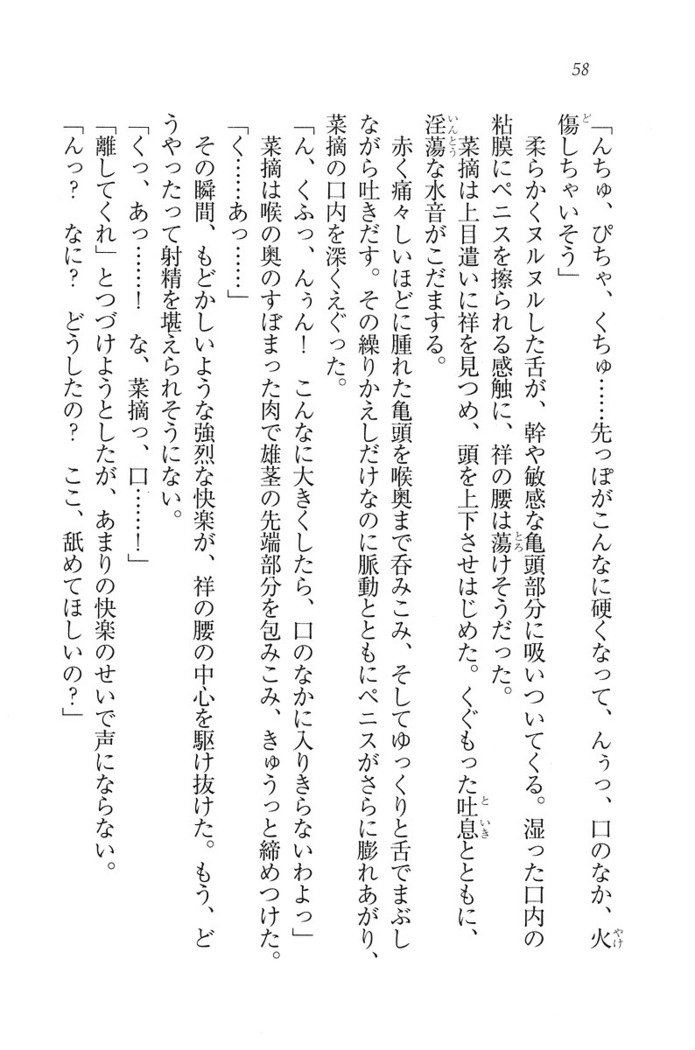 58
「んちゅ、ぴちゃ、くちゅ……先っぽがこんなに硬くなって、んぅっ、口のなか、火
傷しちゃいそう」
柔らかくヌルヌルした舌が、幹や敏感な亀頭部分に吸いついてくる。湿った口内の
粘膜にペニスを擦られる感触に、祥の腰は蕩けそうだった。
菜摘は上目遣いに祥を見つめ、頭を上下させはじめた。くぐもった吐息とともに、
淫蕩な水音がこだまする。
赤く痛々しいほどに腫れた亀頭を喉奥まで呑みこみ、そしてゆっくりと舌でまぶし
ながら吐きだす。その繰りかえしだけなのに脈動とともにペニスがさらに膨れあがり、
菜摘の口内を深くえぐった。
「ん、くふっ、んぅん！　こんなに大きくしたら、口のなかに入りきらないわよっ」
菜摘は喉の奥のすぼまった肉で雄茎の先端部分を包みこみ、きゅうっと締めつけた。
「く……あっ……」
その瞬間、もどかしいような強烈な快楽が、祥の腰の中心を駆け抜けた。もう、ど
うやったって射精を堪えられそうにない。
「くっ、あっ……！　な、菜摘っ、口……！」
「離してくれ」とつづけようとしたが、あまりの快楽のせいで声にならない。
「んっ？　なに？　どうしたの？　ここ、舐めてほしいの？」